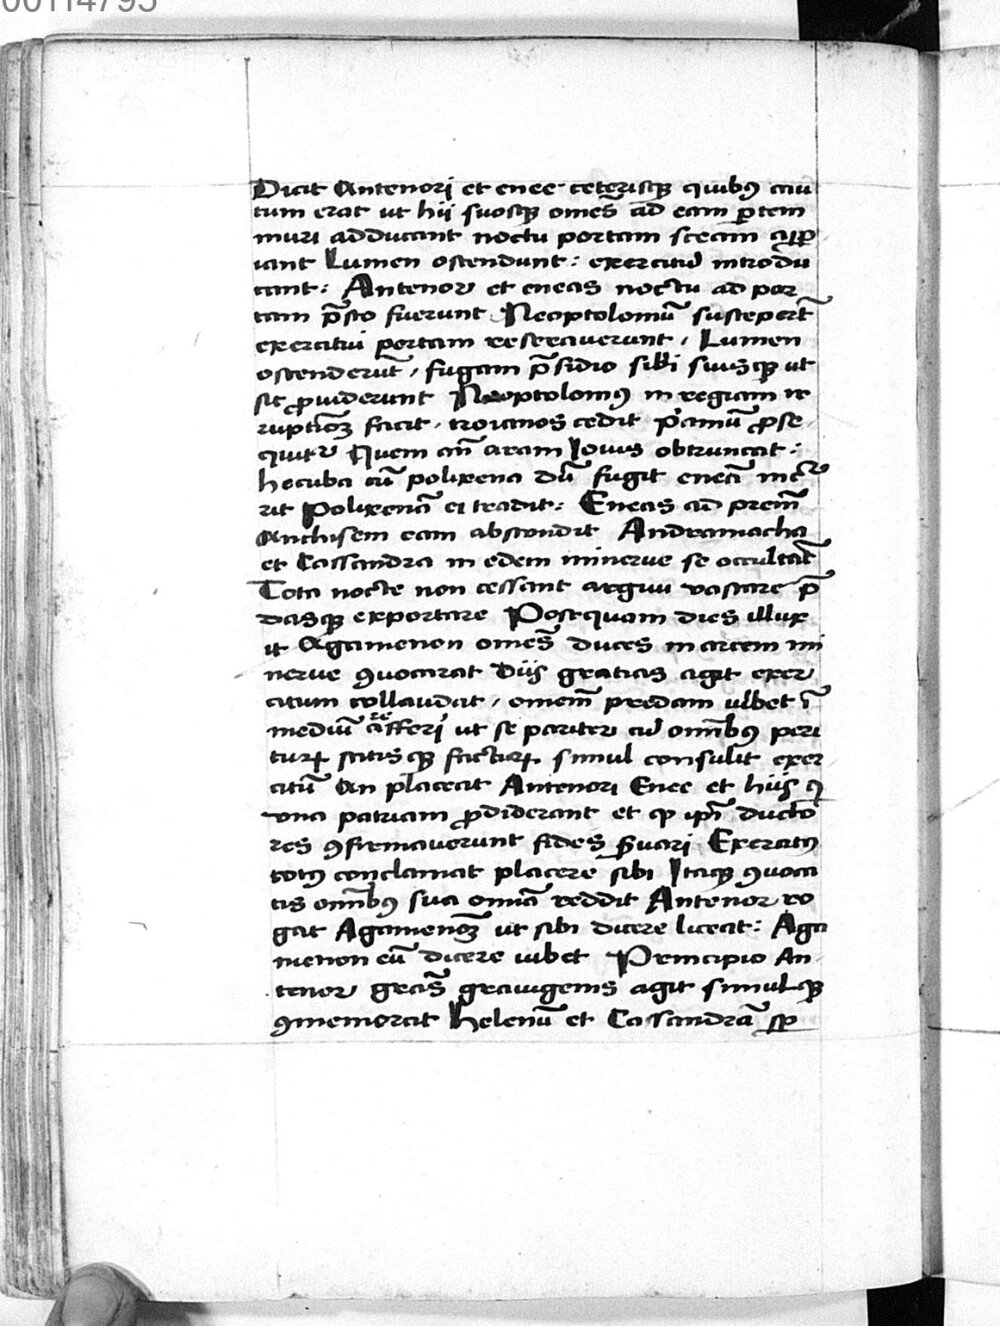 00114795
Dicit Antenori et enee ceterisqꝫ quibꝰ cau
tum erat ut hij suosqꝫ omēs ad eam ꝑtem
muri adducant noctu portam sceam apꝑ
iant Lumen ostendunt: exercitū introdu
cant: Antenor et eneas noctu ad por
tam p̄sto fuerunt Neoptolomū susceperūt
exercitui portam reseraverunt, Lumen
ostenderūt, fugam p̄sidio sibi suisqꝫ ut
sit ꝓuiderunt Neoptolomꝰ in regiam ir
ruptōꝫ facit, troianos cedit p'amū ꝓse
quitr̄ Quem an̄ aram Iouis obtruncat:
hecuba cū polixena dū fugit eneā incur
rit Polixenā ei tradit: Eneas ad prem̄
Anchisem eam abscondit Andromacha
et Cassandra in edem minerve se occultāt
Tota nocte non cessant argiui vastare p̄
dasqꝫ exportare Postquam dies illux
it Agamenon omēs duces in arcem mi
nerve ꝯuocarat Diis gratias agit exer
citum collaudat, omem̄ predam iubet ī
mediū afferri ut se pariter cū omībꝰ peri
simul consulit exer
citū An placeat Antenori Enee et hiis qͥ
vna patriam ꝓdiderant et qꝫ ipī ducto
res ꝯfirmaverunt fides ẜuari Exercitꝰ
totꝰ conclamat placere sibi Itaqꝫ ꝯuoca
tis omībꝰ sua omīa reddit Antenor ro
gat Agamenoꝫ ut sibi dicere liceat: Aga
menon eū dicere iubet Principio An
tenor gracs̄ graiugenis agit simulqꝫ
ꝯmemorat helenū et Cassandrā sꝑ